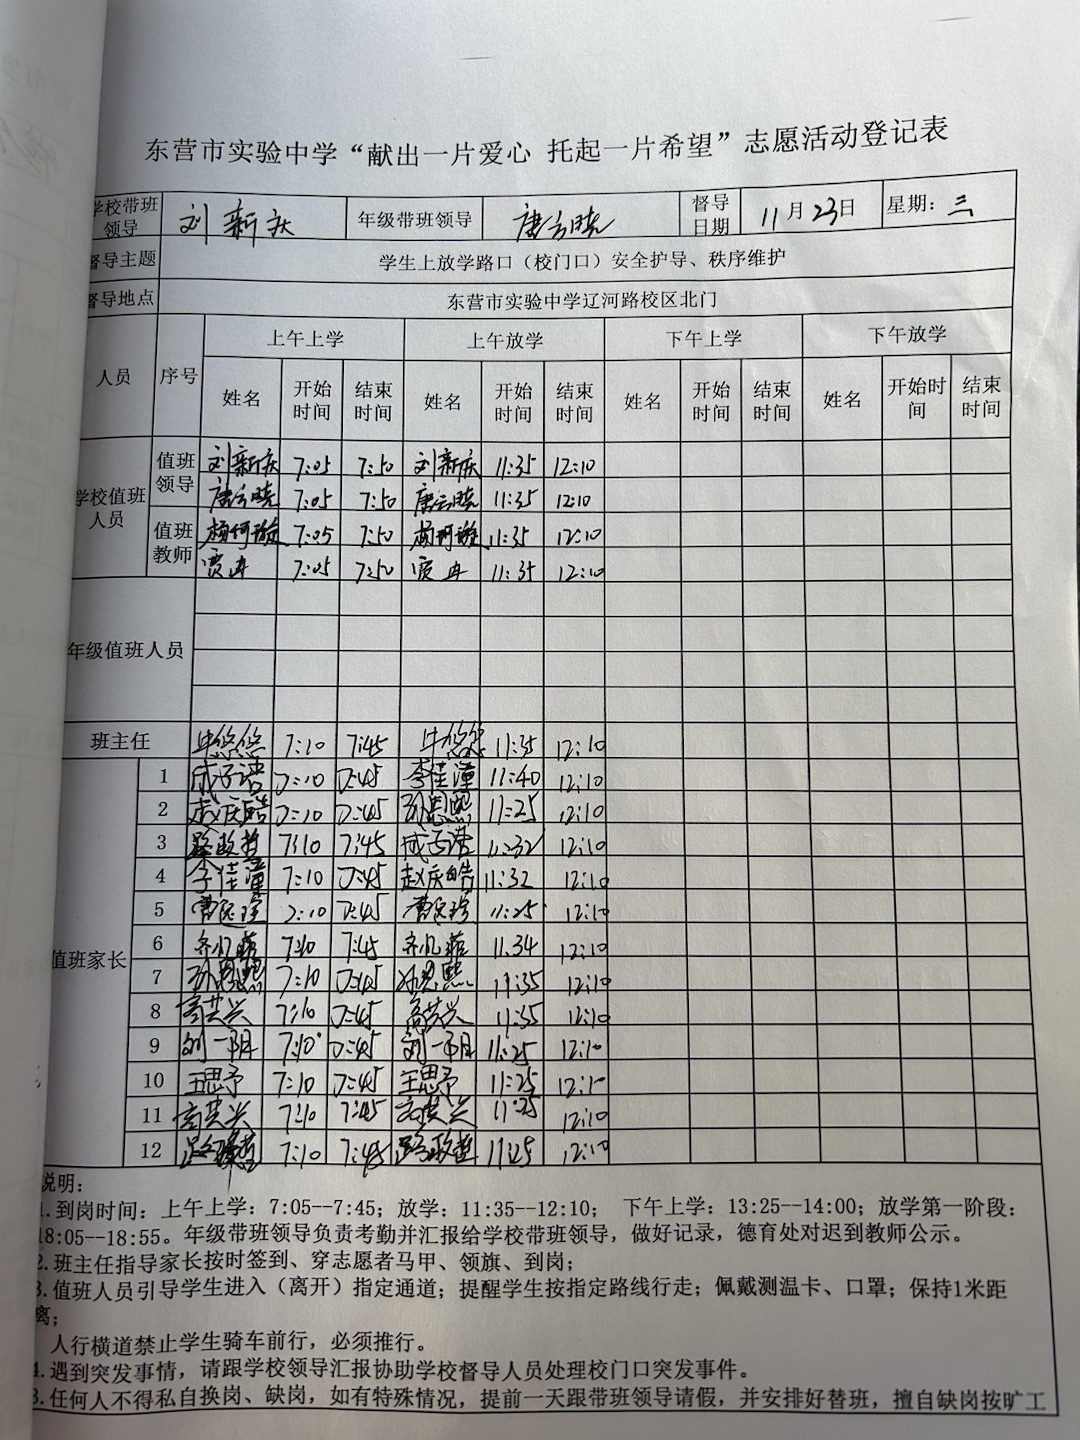 东营市实验中学“献出一片爱心 托起一片希望”志愿活动登记表
学校带班领导 刘新庆 年级带班领导 唐云晓 督导日期 11月23日 星期：三
督导主题 学生上放学路口（校门口）安全护导、秩序维护
督导地点 东营市实验中学辽河路校区北门
人员 序号 上午上学 上午放学 下午上学 下午放学
姓名 开始时间 结束时间 姓名 开始时间 结束时间 姓名 开始时间 结束时间 姓名 开始时间 结束时间
学校值班人员 值班领导 刘新庆 7:05 7:50 刘新庆 11:35 12:10
唐云晓 7:05 7:50 唐云晓 11:35 12:10
值班教师 杨珂璇 7:05 7:50 杨珂璇 11:35 12:10
贾冉 7:05 7:50 贾冉 11:35 12:10
年级值班人员
班主任 牛悠悠 7:10 7:45 牛悠悠 11:35 12:10
值班家长 1 成子诺 7:10 7:45 李佳潼 11:40 12:10
2 赵庆皓 7:10 7:45 孙思熙 11:25 12:10
3 路政哲 7:10 7:45 成子诺 11:32 12:10
4 李佳潼 7:10 7:45 赵庆皓 11:32 12:10
5 曹 7:10 7:45 曹 11:25 12:10
6 齐 菲 7:10 7:45 齐 菲 11.34 12:10
7 孙思熙 7:10 7:45 孙思熙 11:35 12:10
8 高艺兴 7:10 7:45 高艺兴 11:35 12:10
9 刘一玥 7:10 7:45 刘一玥 11:25 12:10
10 王思予 7:10 7:45 王思予 11:25 12:10
11 高艺兴 7:10 7:45 高艺兴 11:25 12:10
12 路政哲 7:10 7:45 路政哲 11:25 12:10
说明：
1.到岗时间：上午上学：7:05--7:45；放学：11:35--12:10； 下午上学：13:25--14:00；放学第一阶段：
18:05--18:55。年级带班领导负责考勤并汇报给学校带班领导，做好记录，德育处对迟到教师公示。
2.班主任指导家长按时签到、穿志愿者马甲、领旗、到岗；
3.值班人员引导学生进入（离开）指定通道；提醒学生按指定路线行走；佩戴测温卡、口罩；保持1米距
离；
人行横道禁止学生骑车前行，必须推行。
4.遇到突发事情，请跟学校领导汇报协助学校督导人员处理校门口突发事件。
5.任何人不得私自换岗、缺岗，如有特殊情况，提前一天跟带班领导请假，并安排好替班，擅自缺岗按旷工